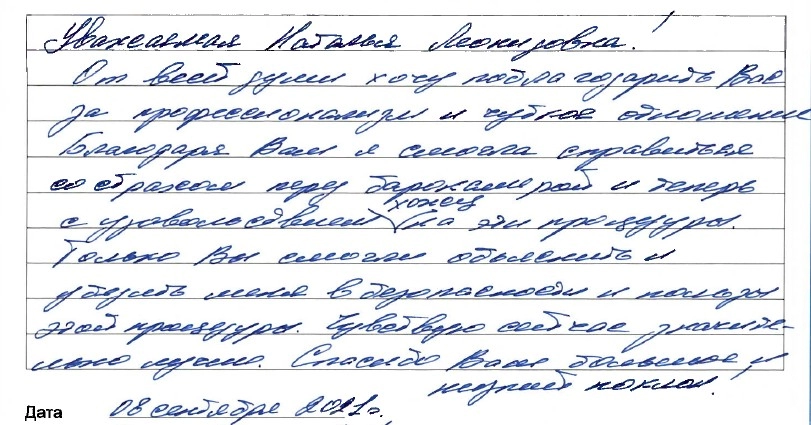 Уважаемая Наталья Леонидовна!
От всей души хочу поблагодарить Вас
за профессионализм и чуткое отношение
Благодаря Вам я смогла справиться
со страхом перед барокамерой и теперь
с удовольствием хожу на эти процедуры.
Только Вы смогли объяснить и
убедить меня в безопасности и пользы
этой процедуры. Чувствую сейчас значите-
льно лучше. Спасибо Вам большое и
низкий поклон!
Дата 08 сентября 2021 г.